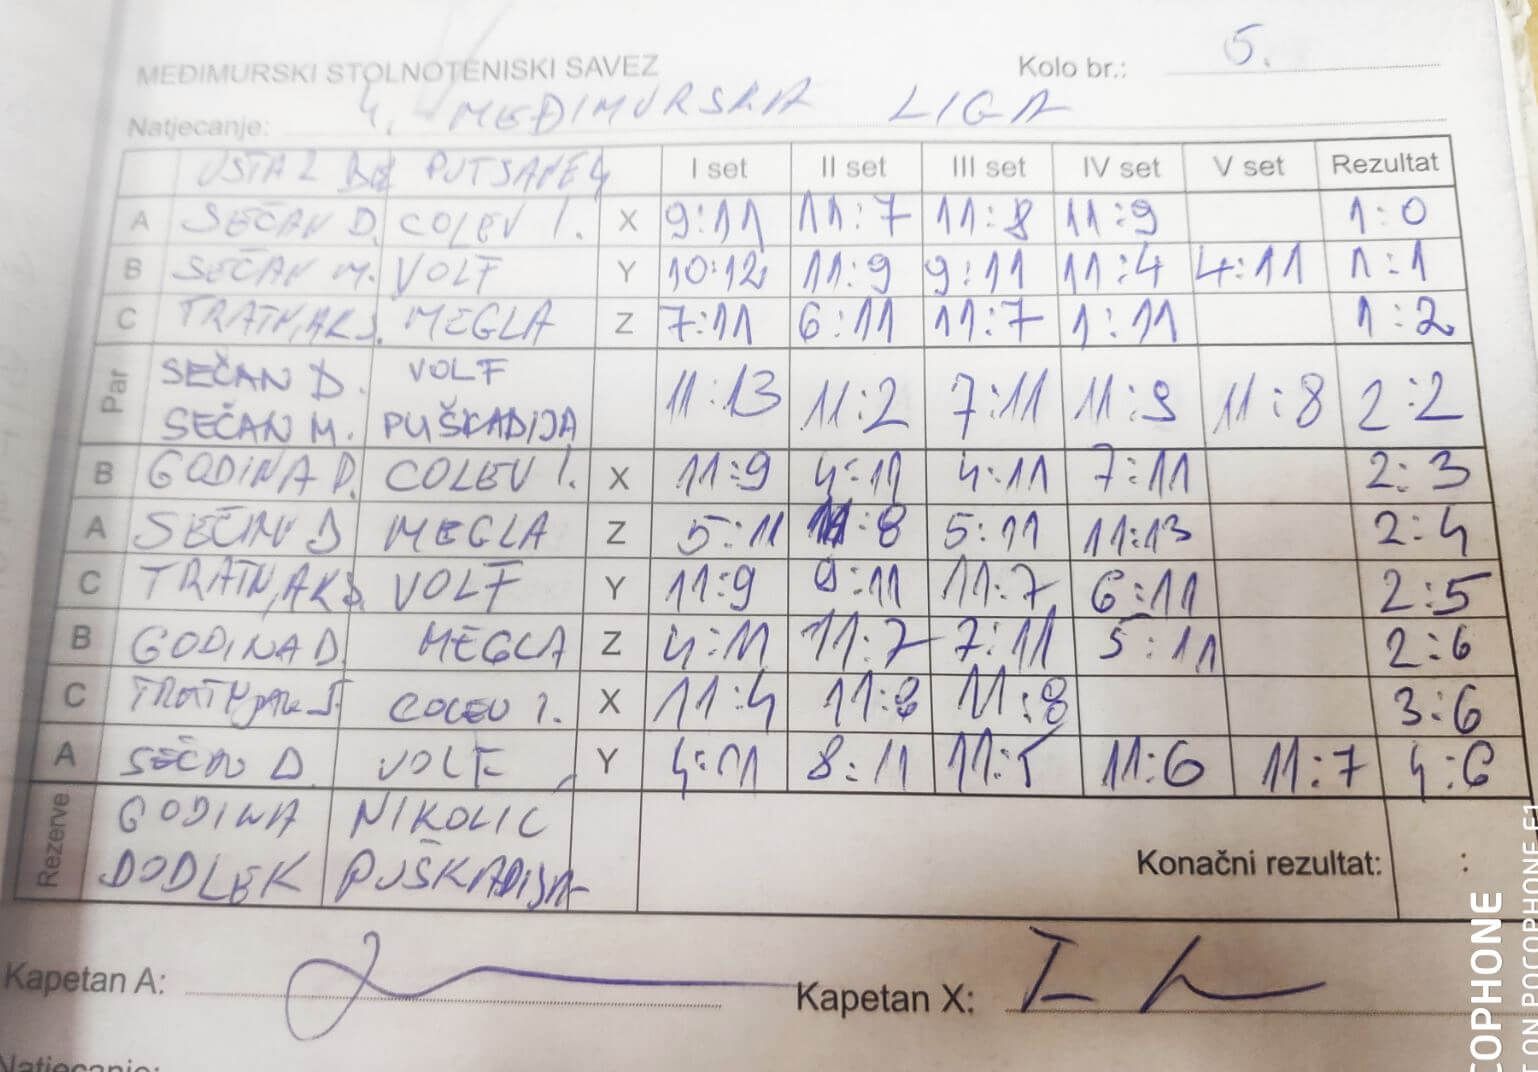 MEĐIMURSKI STOLNOTENISKI SAVEZ Kolo br.: 5.
Natjecanje: 4. MEĐIMURSKA LIGA
I set II set III set IV set V set Rezultat
A SEČAN D. COLEV I. X 9:11 11:7 11:8 11:9 1:0
B SEČAN M. VOLF Y 10:12 11:9 9:11 11:4 4:11 1:1
C MEGLA Z 7:11 6:11 11:7 1:11 1:2
Par SEČAN D. VOLF
SEČAN M. PUŠKADIJA 11:13 11:2 7:11 11:9 11:8 2:2
B GODINA D. COLEV I. X 11:9 4:11 4:11 7:11 2:3
A SEČAN D MEGLA Z 5:11 11:8 5:11 11:13 2:4
C VOLF Y 11:9 9:11 11:7 6:11 2:5
B GODINA D. MEGLA Z 4:11 11:7 7:11 5:11 2:6
C COLEV I. X 11:4 11:8 11:8 3:6
A SEČAN D. VOLF Y 4:11 8:11 11:5 11:6 11:7 4:6
Rezerve GODINA NIKOLIC
DODLEK PUŠKADIJA
Konačni rezultat: :
Kapetan A: Kapetan X:
Natjecanje: